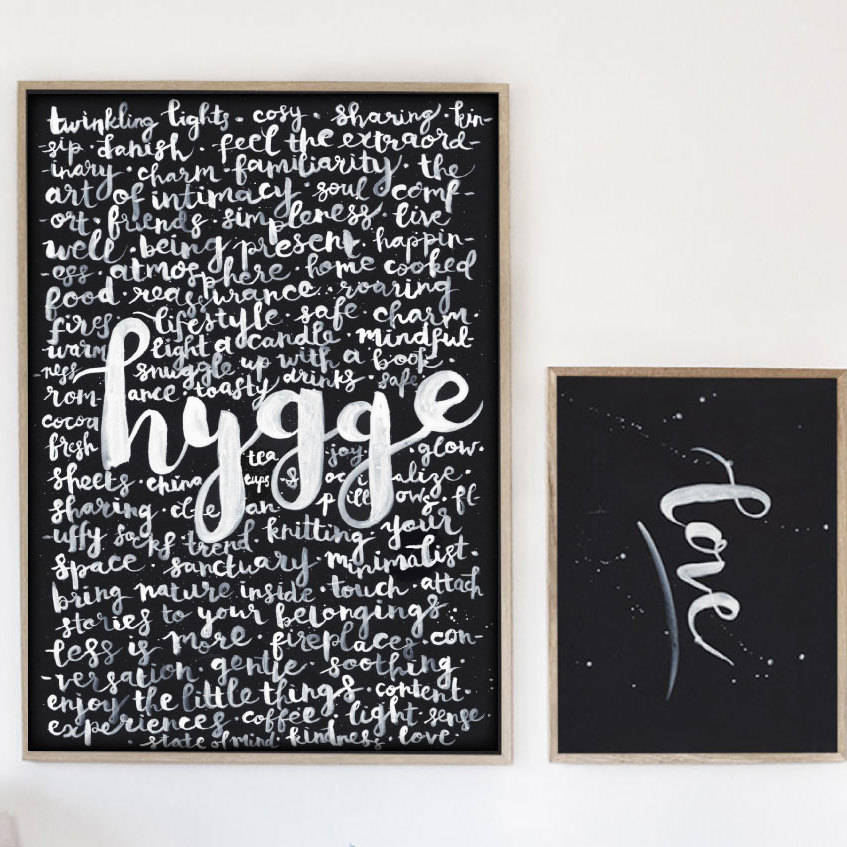 twinkling lights · cosy · sharing · kin-
-ship · danish · feel the extraord-
inary · charm · familiarity · the
art of intimacy · soul comf-
-ort · friends · simpleness · live
well · being present · happin-
-ess · atmosphere · home cooked
food · reassurance · roaring
fires · lifestyle · safe · charm ·
warm light a candle · mindful-
-ness snuggle up with a book ·
rom-ance · toasty drinks · safe
hygge
cocoa
fresh tea joy · glow ·
sheets · china cups · socialize ·
sharing · clean · pillows · fl-
-uffy socks trend knitting your
space · sanctuary minimalist ·
bring nature inside · touch · attach
stories to your belongings ·
less is more · fireplaces · con-
-versation · gentle · soothing ·
enjoy the little things · content ·
experiences coffee · light · sense
· state of mind · kindness · love ·
love